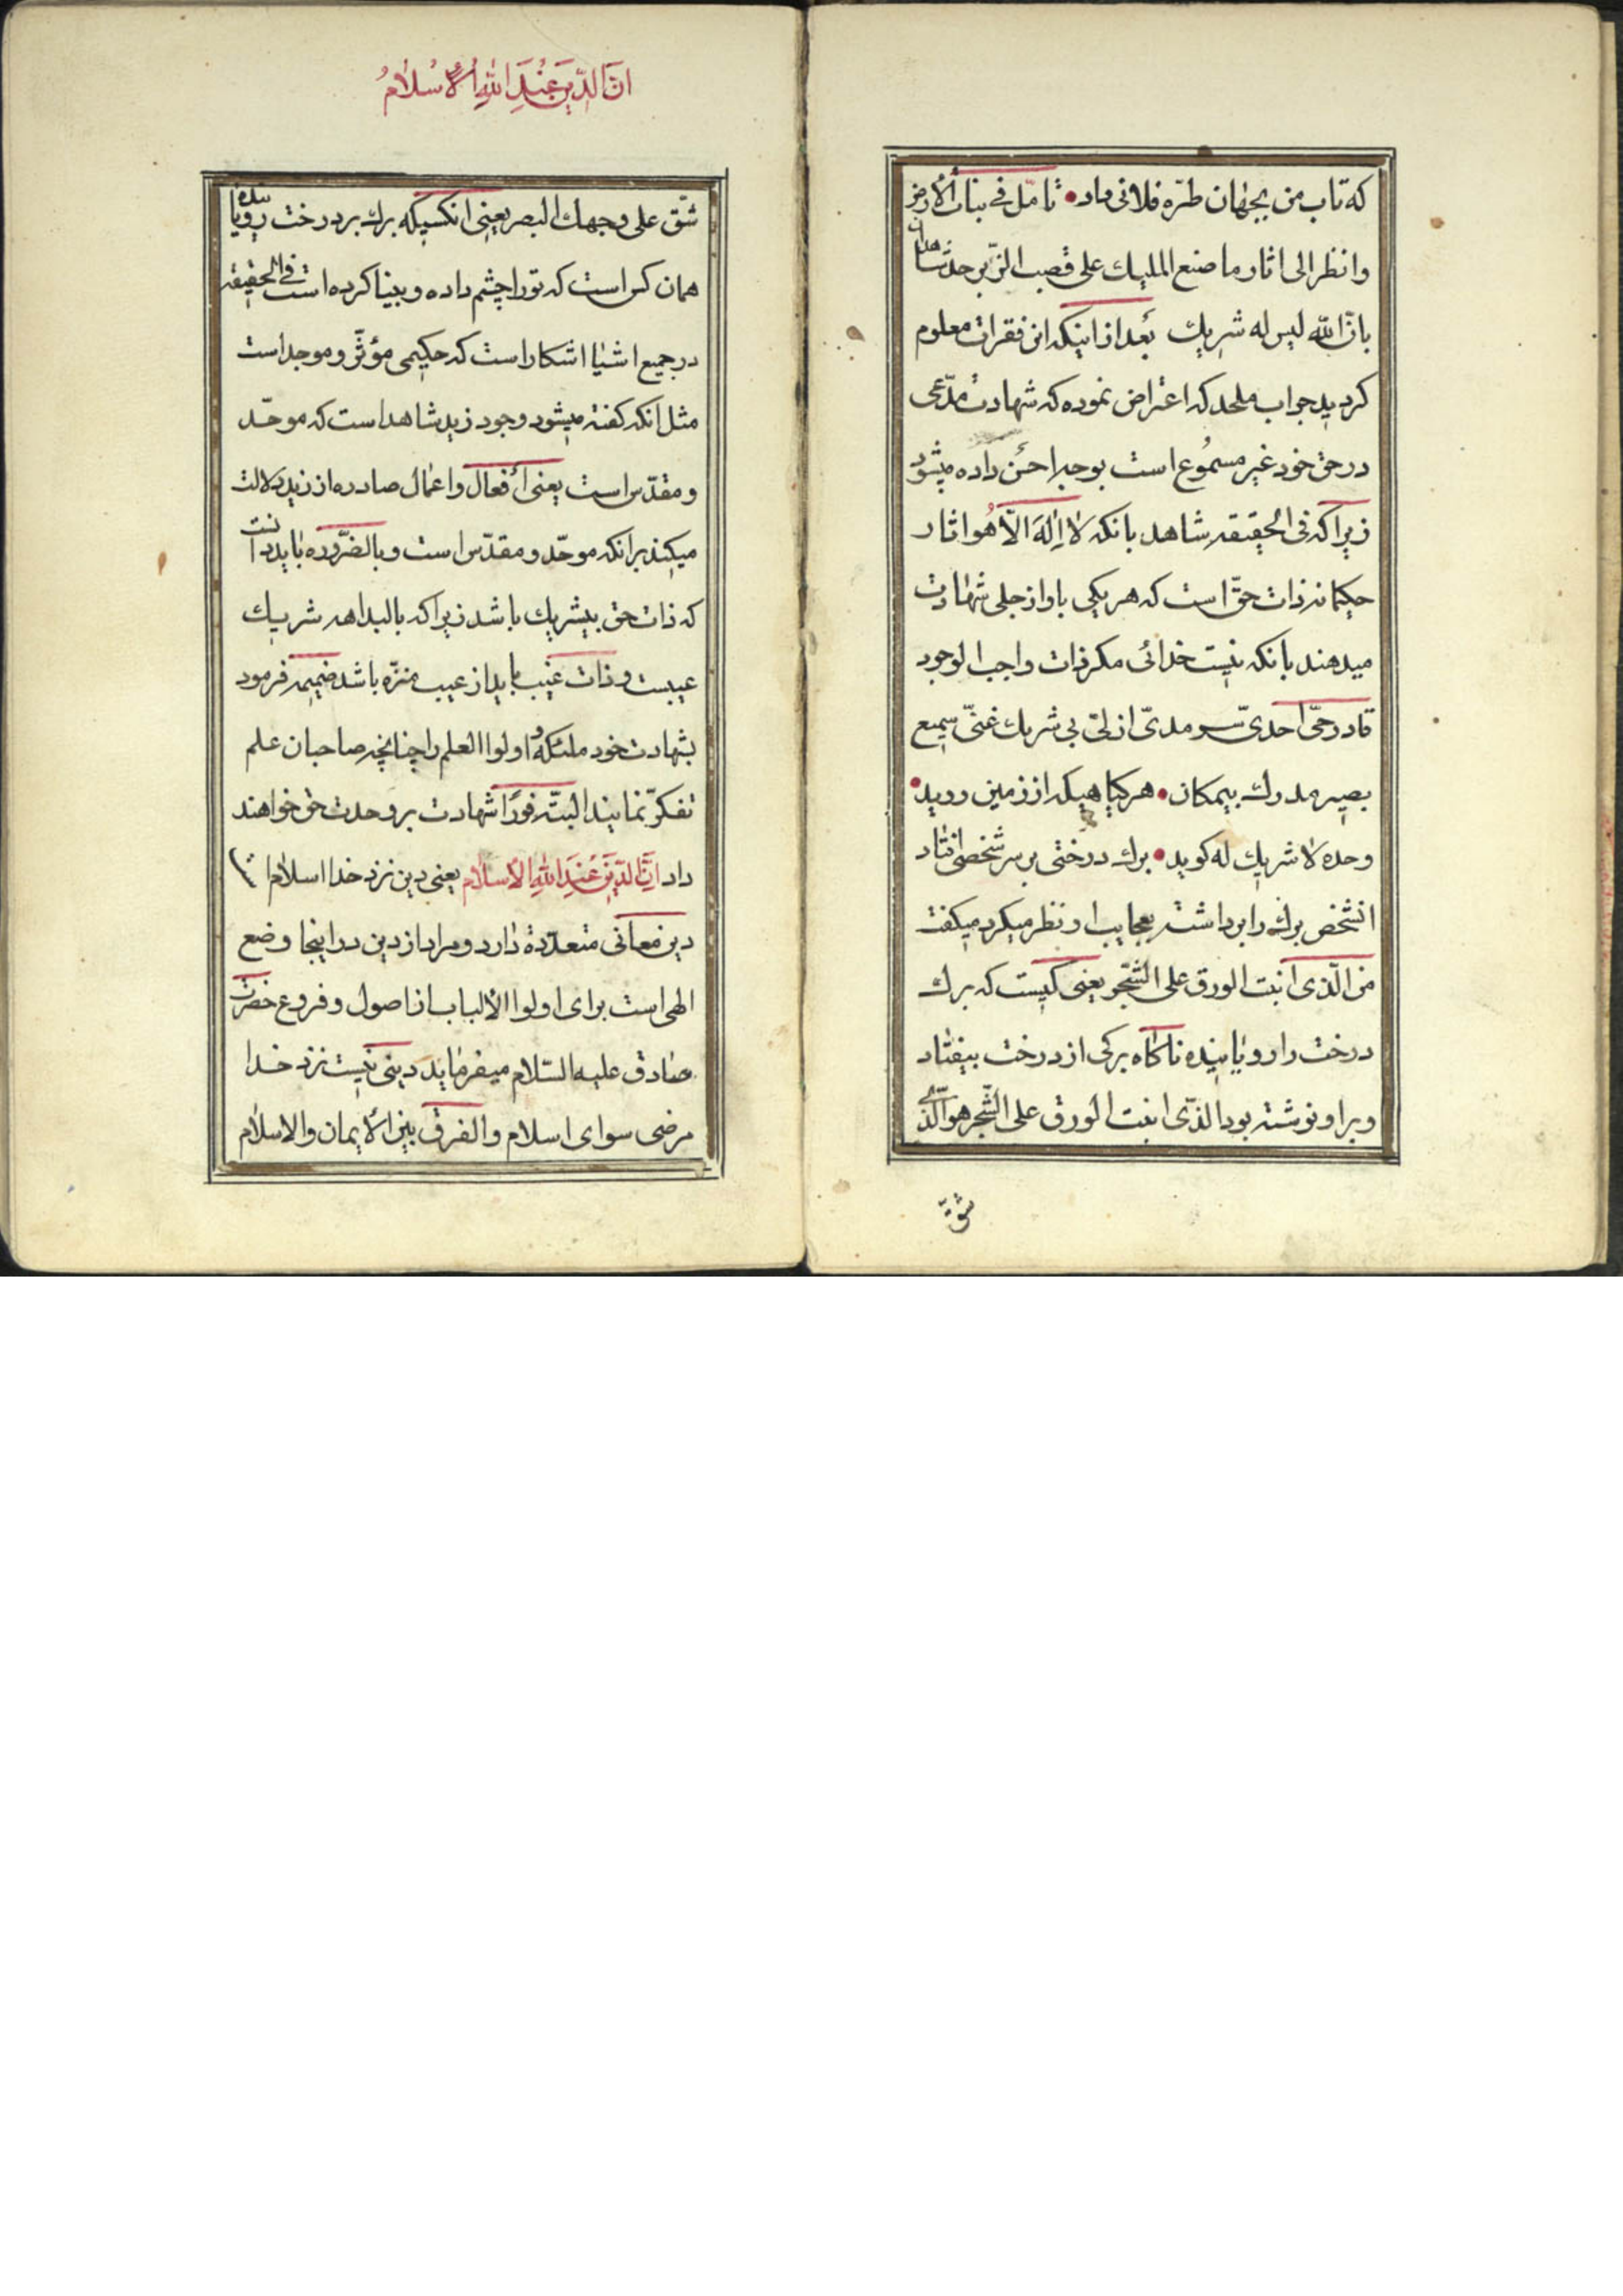 که تاب من بجهان طرّه فلانی داد • تامّل فی نبات الأرض
وانظر الی اثار ما صنع الملیك علی قصب الزّبرجد شاهدات
بانّ اللّه لیس له شریك بعد از اینکه این فقرات معلوم
کردید جواب ملحد که اعتراض نموده که شهادت مدّعی
در حق خود غیر مسموع است بوجه احسن داده میشود
زیرا که فی الحقیقه شاهد بانکه لا اِلٰهَ الّا هُو اثار
حکیمانه ذات حقّ است که هر یکی باواز جلی شهادت
میدهند بانکه نیست خدائی مکر ذات واجب الوجود
قادر حیّ احدیّ سرمدیّ ازلیّ بی شریك غنیّ سمیع
بصیر مدرك بیمکان • هر کیاهیکه از زمین روید •
وحده لا شریك له کوید • برك درختی بر سر شخصی افتاد
انشخص برك را برداشته بعجایب او نظر میکرد میکفت
من الّذی انبت الورق علی الشّجر یعنی کیست که برك
درخت را رویاینده ناکاه برکی از درخت بیفتاد
و بر او نوشته بود الذّی انبت الورق علی الشّجر هو الّذی
شقّ
انَّ الدّینَ عِنْدَ اللّٰهِ الْاِسْلٰامُ
شقّ علی وجهك البصر یعنی انکسیکه برك بر درخت رویاینده
همان کس است که تو را چشم داده و بینا کرده است فی الحقیقه
در جمیع اشیا اشکار است که حکیمی مؤثّر و موجد است
مثل انکه کفته میشود وجود زید شاهد است که موحّد
و مقدّس است یعنی افعال و اعمال صادره از زید دلالت
میکند بر انکه موحّد و مقدّس است و بالضّروره باید دانست
که ذات حق بیشریك باشد زیرا که بالبداهه شریك
عیبست و ذات غیب باید از عیب منزّه باشد ضمیمه فرمود
بشهادت خود ملئکه و اولوا العلم را چنانچه صاحبان علم
تفکّر نمایند البتّه فورًا شهادت بر وحدت حق خواهند
داد انَّ الدّینَ عِنْدَ اللّٰهِ الْاِسلٰام یعنی دین نزد خدا اسلام است
دین معانی متعدّدة دارد و مراد از دین در اینجا وضع
الهی است برای اولوا الألباب از اصول و فروع حضرت
صادق علیه السّلام میفرماید دینی نیست نزد خدا
مرضی سوای اسلام والفرق بین الأیمان والاسلام